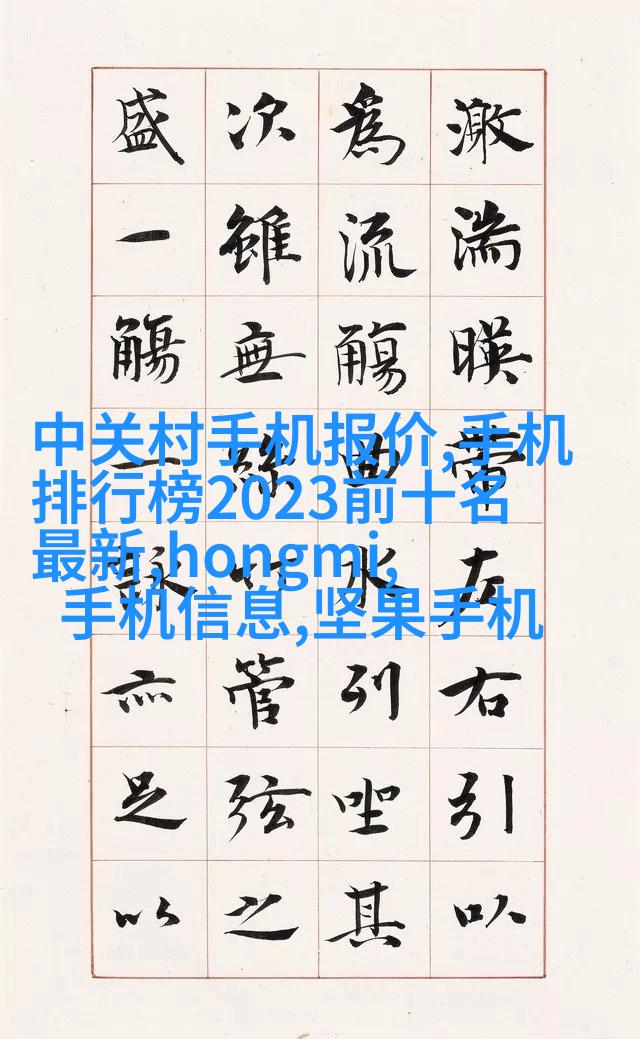 激湍暎帶左右引以
爲流觴曲水列坐其
次雖無絲竹管弦之
盛一觴一詠亦足以
中关村手机报价,手机
排行榜2023前十名
最新,hongmi,
手机信息,坚果手机